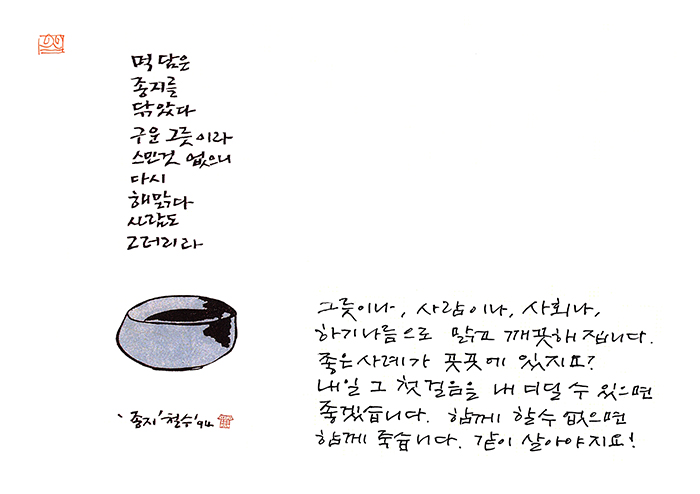 먹 담은
종지를
닦았다
구운 그릇이라
스민것 없으니
다시
해맑다
사람도
그러리라
'종지' 철수 '94
그릇이나, 사람이나, 사회나,
하기나름으로 맑고 깨끗해집니다.
좋은사례가 곳곳에 있지요?
내일 그 첫 걸음을 내 디딜 수 있으면
좋겠습니다. 함께 할수 없으면
함께 죽습니다. 같이 살아야지요!